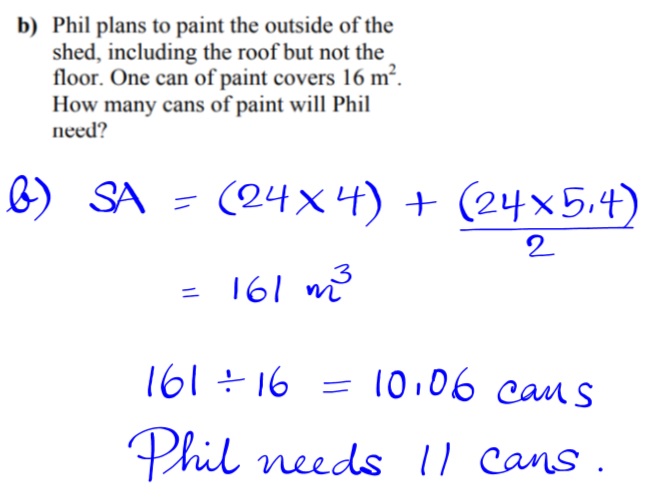 b) Phil plans to paint the outside of the
shed, including the roof but not the
floor. One can of paint covers 16 m².
How many cans of paint will Phil
need?
b) SA = (24 × 4) + (24 × 5.4)
2
= 161 m³
161 ÷ 16 = 10.06 cans
Phil needs 11 cans.